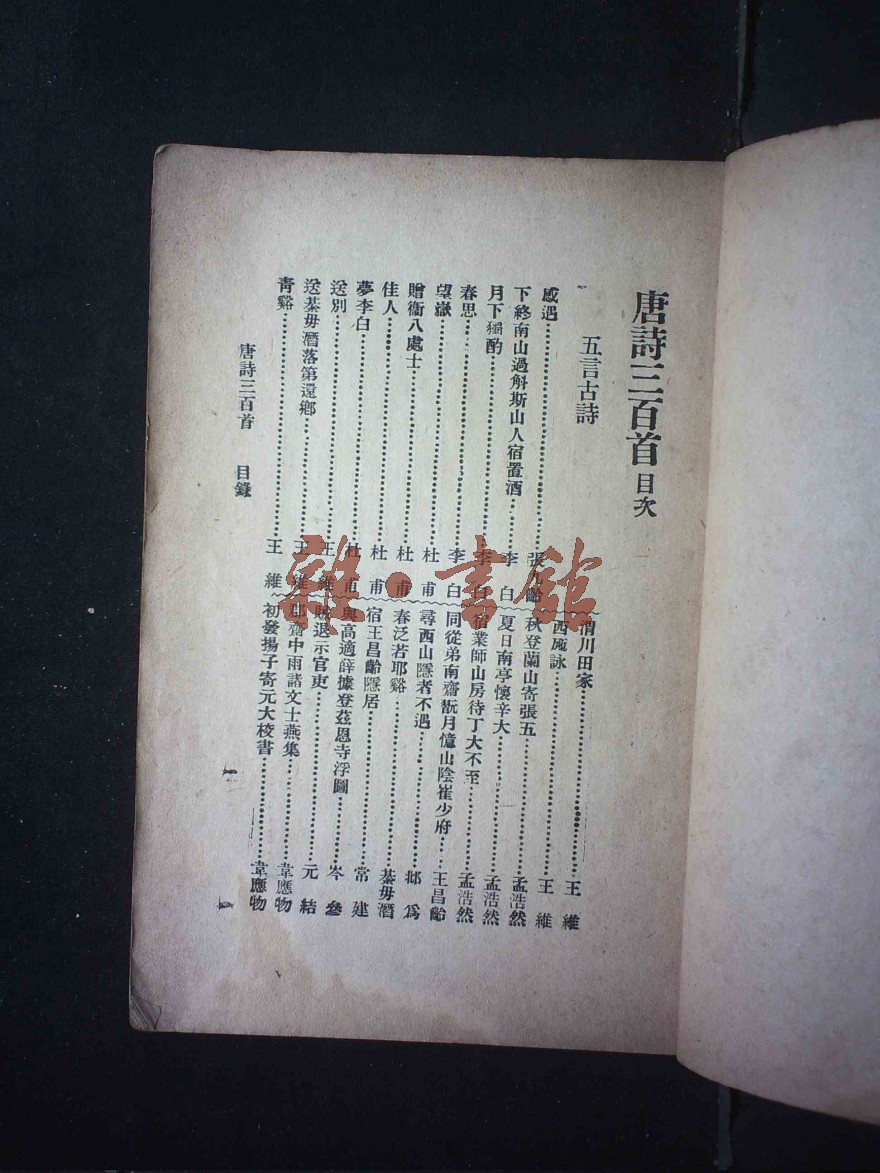 唐詩三百首目次
五言古詩
感遇……張九齡
下終南山過斛斯山人宿置酒……李白
月下獨酌……李白
春思……李白
望嶽……杜甫
贈衞八處士……杜甫
佳人……杜甫
夢李白……杜甫
送別……王維
送綦毋潛落第還鄉……王維
青谿……王維
渭川田家……王維
西施詠……王維
秋登蘭山寄張五……孟浩然
夏日南亭懷辛大……孟浩然
宿業師山房待丁大不至……孟浩然
同從弟南齋翫月憶山陰崔少府……王昌齡
尋西山隱者不遇……邱爲
春泛若耶谿……綦毋潛
宿王昌齡隱居……常建
與高適薛據登茲恩寺浮圖……岑參
賊退示官吏……元結
郡齋中雨諸文士燕集……韋應物
初發揚子寄元大棱書……韋應物
唐詩三百首 目錄
一
雜·書館